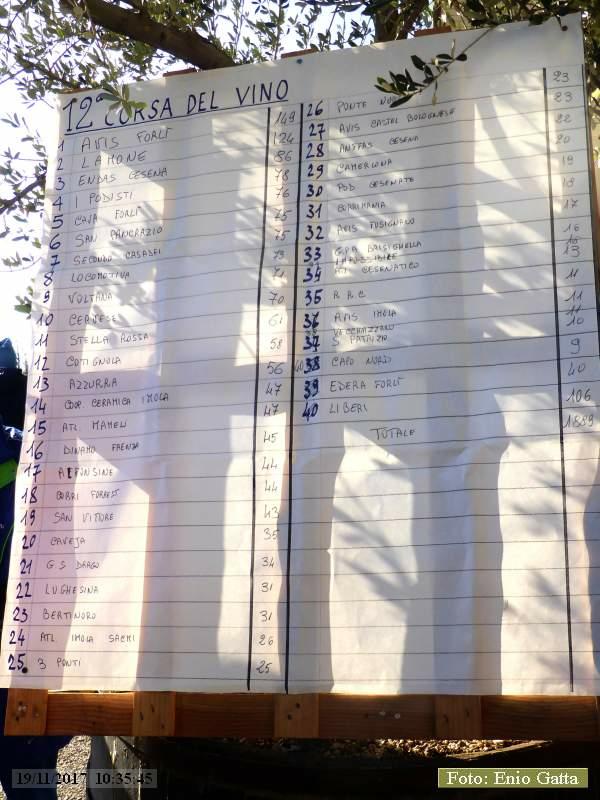 12ª CORSA DEL VINO
1 AVIS FORLÌ 149
2 LAMONE 124
3 ENDAS CESENA 86
4 I PODISTI 78
5 CAVA FORLÌ 76
6 SAN PANCRAZIO 75
7 SECONDO CASADEI 75
8 LOCOMOTIVA 73
9 VOLTANA 71
10 CERVESE 70
11 STELLA ROSSA 61
12 COTIGNOLA 58
13 AZZURRA 56
14 COOP. CERAMICA IMOLA 47
15 ATL. MAMELI 47
16 DINAMO FAENZA 45
17 ALFONSINE 44
18 CORRI FORREST 44
19 SAN VITORE 43
20 CAVEJA 35
21 G S DRAGO 34
22 LUGHESINA 31
23 BERTINORO 31
24 ATL IMOLA SACMI 26
25 3 PONTI 25
26 PONTE 23
27 AVIS CASTEL BOLOGNESE 23
28 ANFFAS CESENA 22
29 CAMERLONA 20
30 POD CESENATE 19
31 CORRIMANIA 18
32 AVIS FUSIGNANO 17
33 G.P.A BRISIGHELLA 16
IMPOSSIBILE 16
34 ATL CESENATICO 13
35 R R C 11
36 AVIS IMOLA 11
VECCHIAZZANO 11
37 S PATRIZIO 10
38 CAPO NORD 9
39 EDERA FORLÌ 40
40 LIBERI 106
TOTALE 1889
19/11/2017 10:35:45
Foto: Enio Gatta